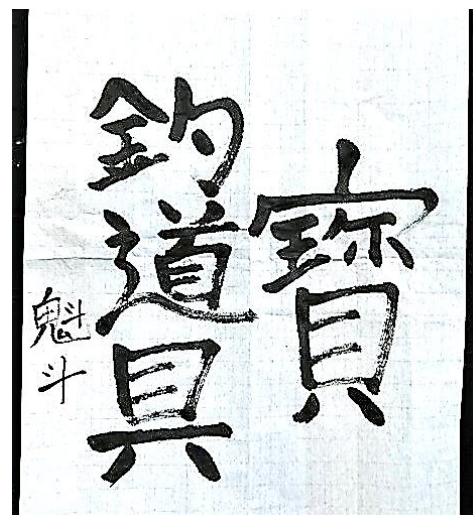 寳
釣道具
魁斗